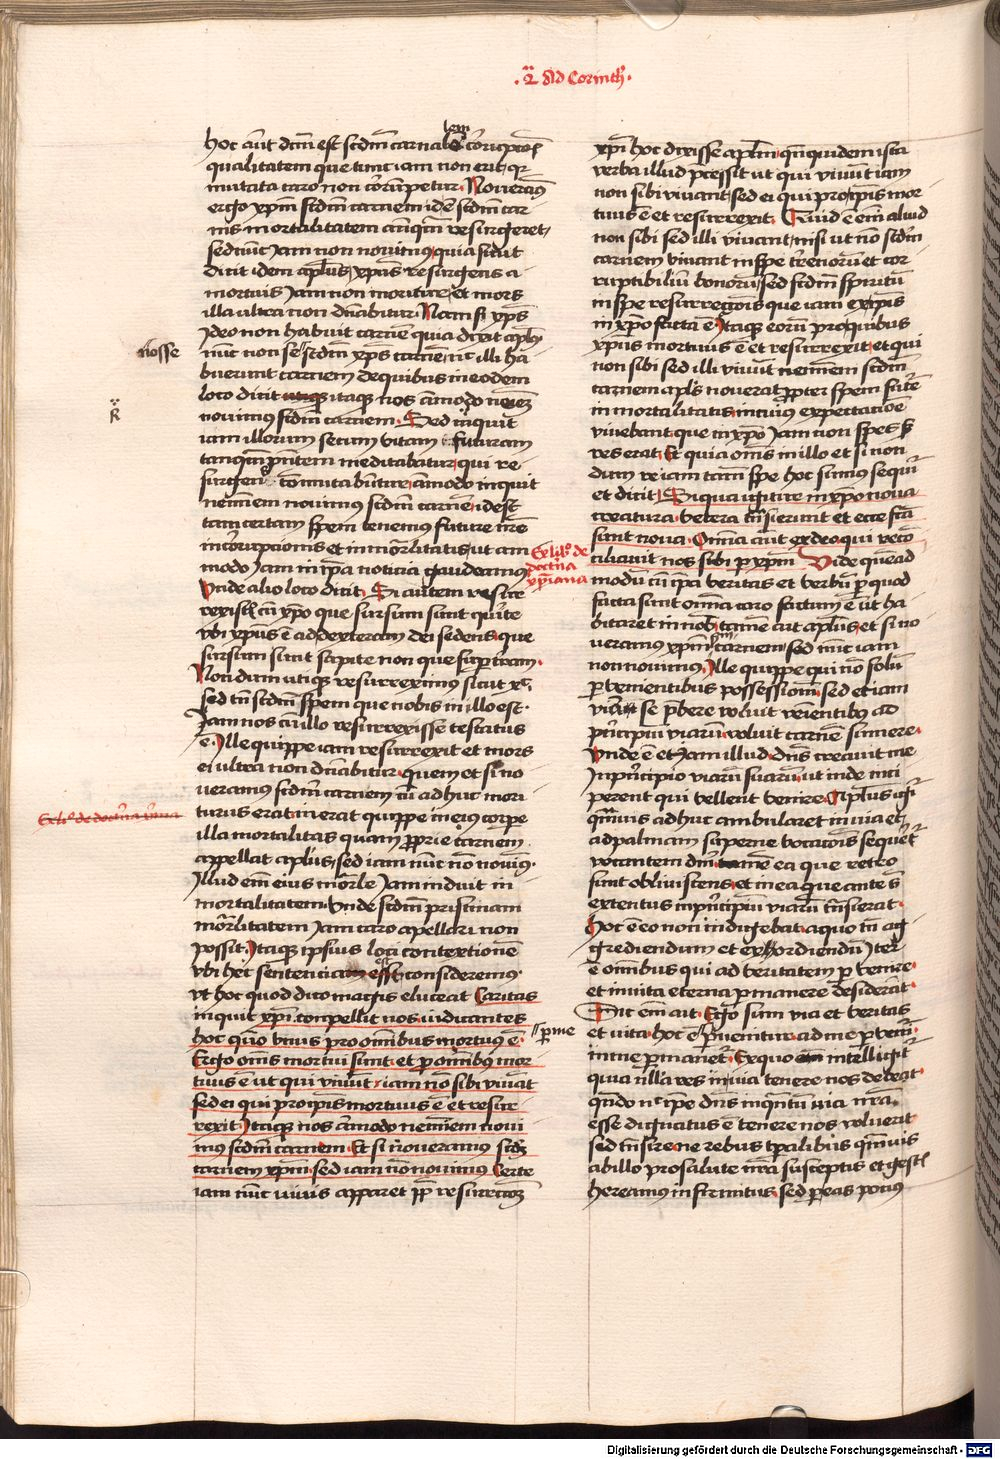 .2ª Ad Corinth'.
hoc aut dcm est scdm carnalem corrupcois
qualitatem que tunc iam non erit, qr
mutata caro non corrumpetur. Noveramus
ergo xpm scdm carnem idem scdm car
nis mortalitatem anteqm resurgeret,
sed nunc iam non novimus, quia sicut
dicit idem aplus, xpus resurgens a
mortuis iam non moritur, et mors
illa ultra non dnabitur. Nam si xps
ideo non habuit carnem quia dixit aplus
nosse
nunc non se scdm xps carnem, nec illi ha
buerunt carnem de quibus in eodem
loco dicit itaque nos amodo neminem
novimus scdm carnem. Sed inquit
iam illorum secum vitam futuram
tanqm pntem meditabatur, qui re
surgentes commutabuntur, amodo inquit
neminem novimus scdm carnem, id est
tam certam spem tenemus future nre
incorrupcionis et immortalitatis, ut am
modo iam in ipa noticia gaudeamus
Unde alio loco dicit. Si autem resurre
rexistis cu xpo que sursum sunt querite
ubi xpus e ad dexteram dei sedens, que
sursum sunt sapite non que sup terram.
Nondum utique resurreximus sicut xc,
sed tn scdm spem que nobis in illo est.
Iam nos cu illo resurrexisse testatus
e. Ille quippe iam resurrexit et mors
ei ultra non dnabitur, quem et si no
veramus scdm carnem cu adhuc mori
Ex lib' de doctrina xpiana
turus erat, inerat quippe in eius corpe
illa mortalitas quam proprie carnem
appellat aplus, sed iam nunc non novimus.
Illud em eius mortale iam induit in
mortalitatem. Unde scdm pristinam
mortalitatem iam caro apellari non
possit. Itaque ipsius loci contextionem
ubi hec sententia est consideremus.
ut hoc quod dico magis eluceat Caritas
inquit xpi conpellit nos iudicantes
hoc qm unus pro omnibus mortuus e.
Ergo oms mortui sunt, et p omnibus mor
tuus e ut qui vivunt, iam no sibi vivant
sed ei qui pro ipis mortuus e et resurre
rexit. Itaque nos amodo neminem novi
mus scdm carnem. Et si noveramus scdm
carnem xpm, sed iam no novimus Certe
iam nunc vivis apparet pp resurrectionem
xpi hoc dixisse aplm, qnquidem ista
verba illud pcessit ut qui vivunt iam
non sibi vivant, sed ei qui pro ipis mor
tuus e et resurrexit. Quid e em aliud
non sibi sed illi vivant, nisi ut no scdm
carnem vivant in spe terrenorum et cor
ruptibilium bonorum, sed scdm spiritum
in spe resurrectionis que iam ex ipis
in xpo facta e. Itaque eorum pro quibus
xpus mortuus e et resurrexit, et qui
non sibi sed illi vivunt neminem scdm
carnem aplus noverat, propter spem future
inmortalitatis, in cuius expectatione
vivebant, que in xpo iam non spes sed
res erat. Et quia oms in illo et si non
dum re iam tamen spe hoc sumus sequitur
et dicit, Siqua igitur in xpo nova
creatura, vetera transierunt et ecce facta
sunt nova. Omnia aut ex deo, qui recon
ciliavit nos sibi p xpm.
Ex lib' de
doctrina
xpiana
Vide quemad
modu cu ipa veritas et verbum p quod
facta sunt omnia caro factum e ut ha
bitaret in nobis, tamen ait aplus, et si no
veramus xpm scdm carnem, sed nunc iam
non novimus. Ille quippe qui no solum
pervenientibus possessionem, sed etiam
viam se prebere voluit venientibus ad
principium viarum, voluit carnem sumere.
Unde e et iam illud, dns creavit me
in principio viarum suarum, ut inde inci
perent qui vellent venire. Aplus igitur
qmvis adhuc ambularet in via et
ad palmam superne vocacionis sequeretur
vocantem dm, tamen ea que retro
sunt obliviscens, et in ea que ante st
extentus, in principium viarum transierat.
hoc e eo non indigebat, a quo tn ag
grediendum et exordiendum iter
e omnibus qui ad veritatem pervenire
et in vita eterna permanere desiderant.
Sic em ait. Ego sum via et veritas
et vita, hoc e p me venitur, ad me pervenitur
p me
in me permanetur. Ex quo intelligitur
quia nulla res in via tenere nos debeat,
quando nec ipe dns inquantum via nra
esse dignatus e tenere nos voluerit
sed transire, ne rebus temporalibus qmvis
ab illo pro salute nra susceptis et gestis
hereamus infirmiter, sed p eas pocius